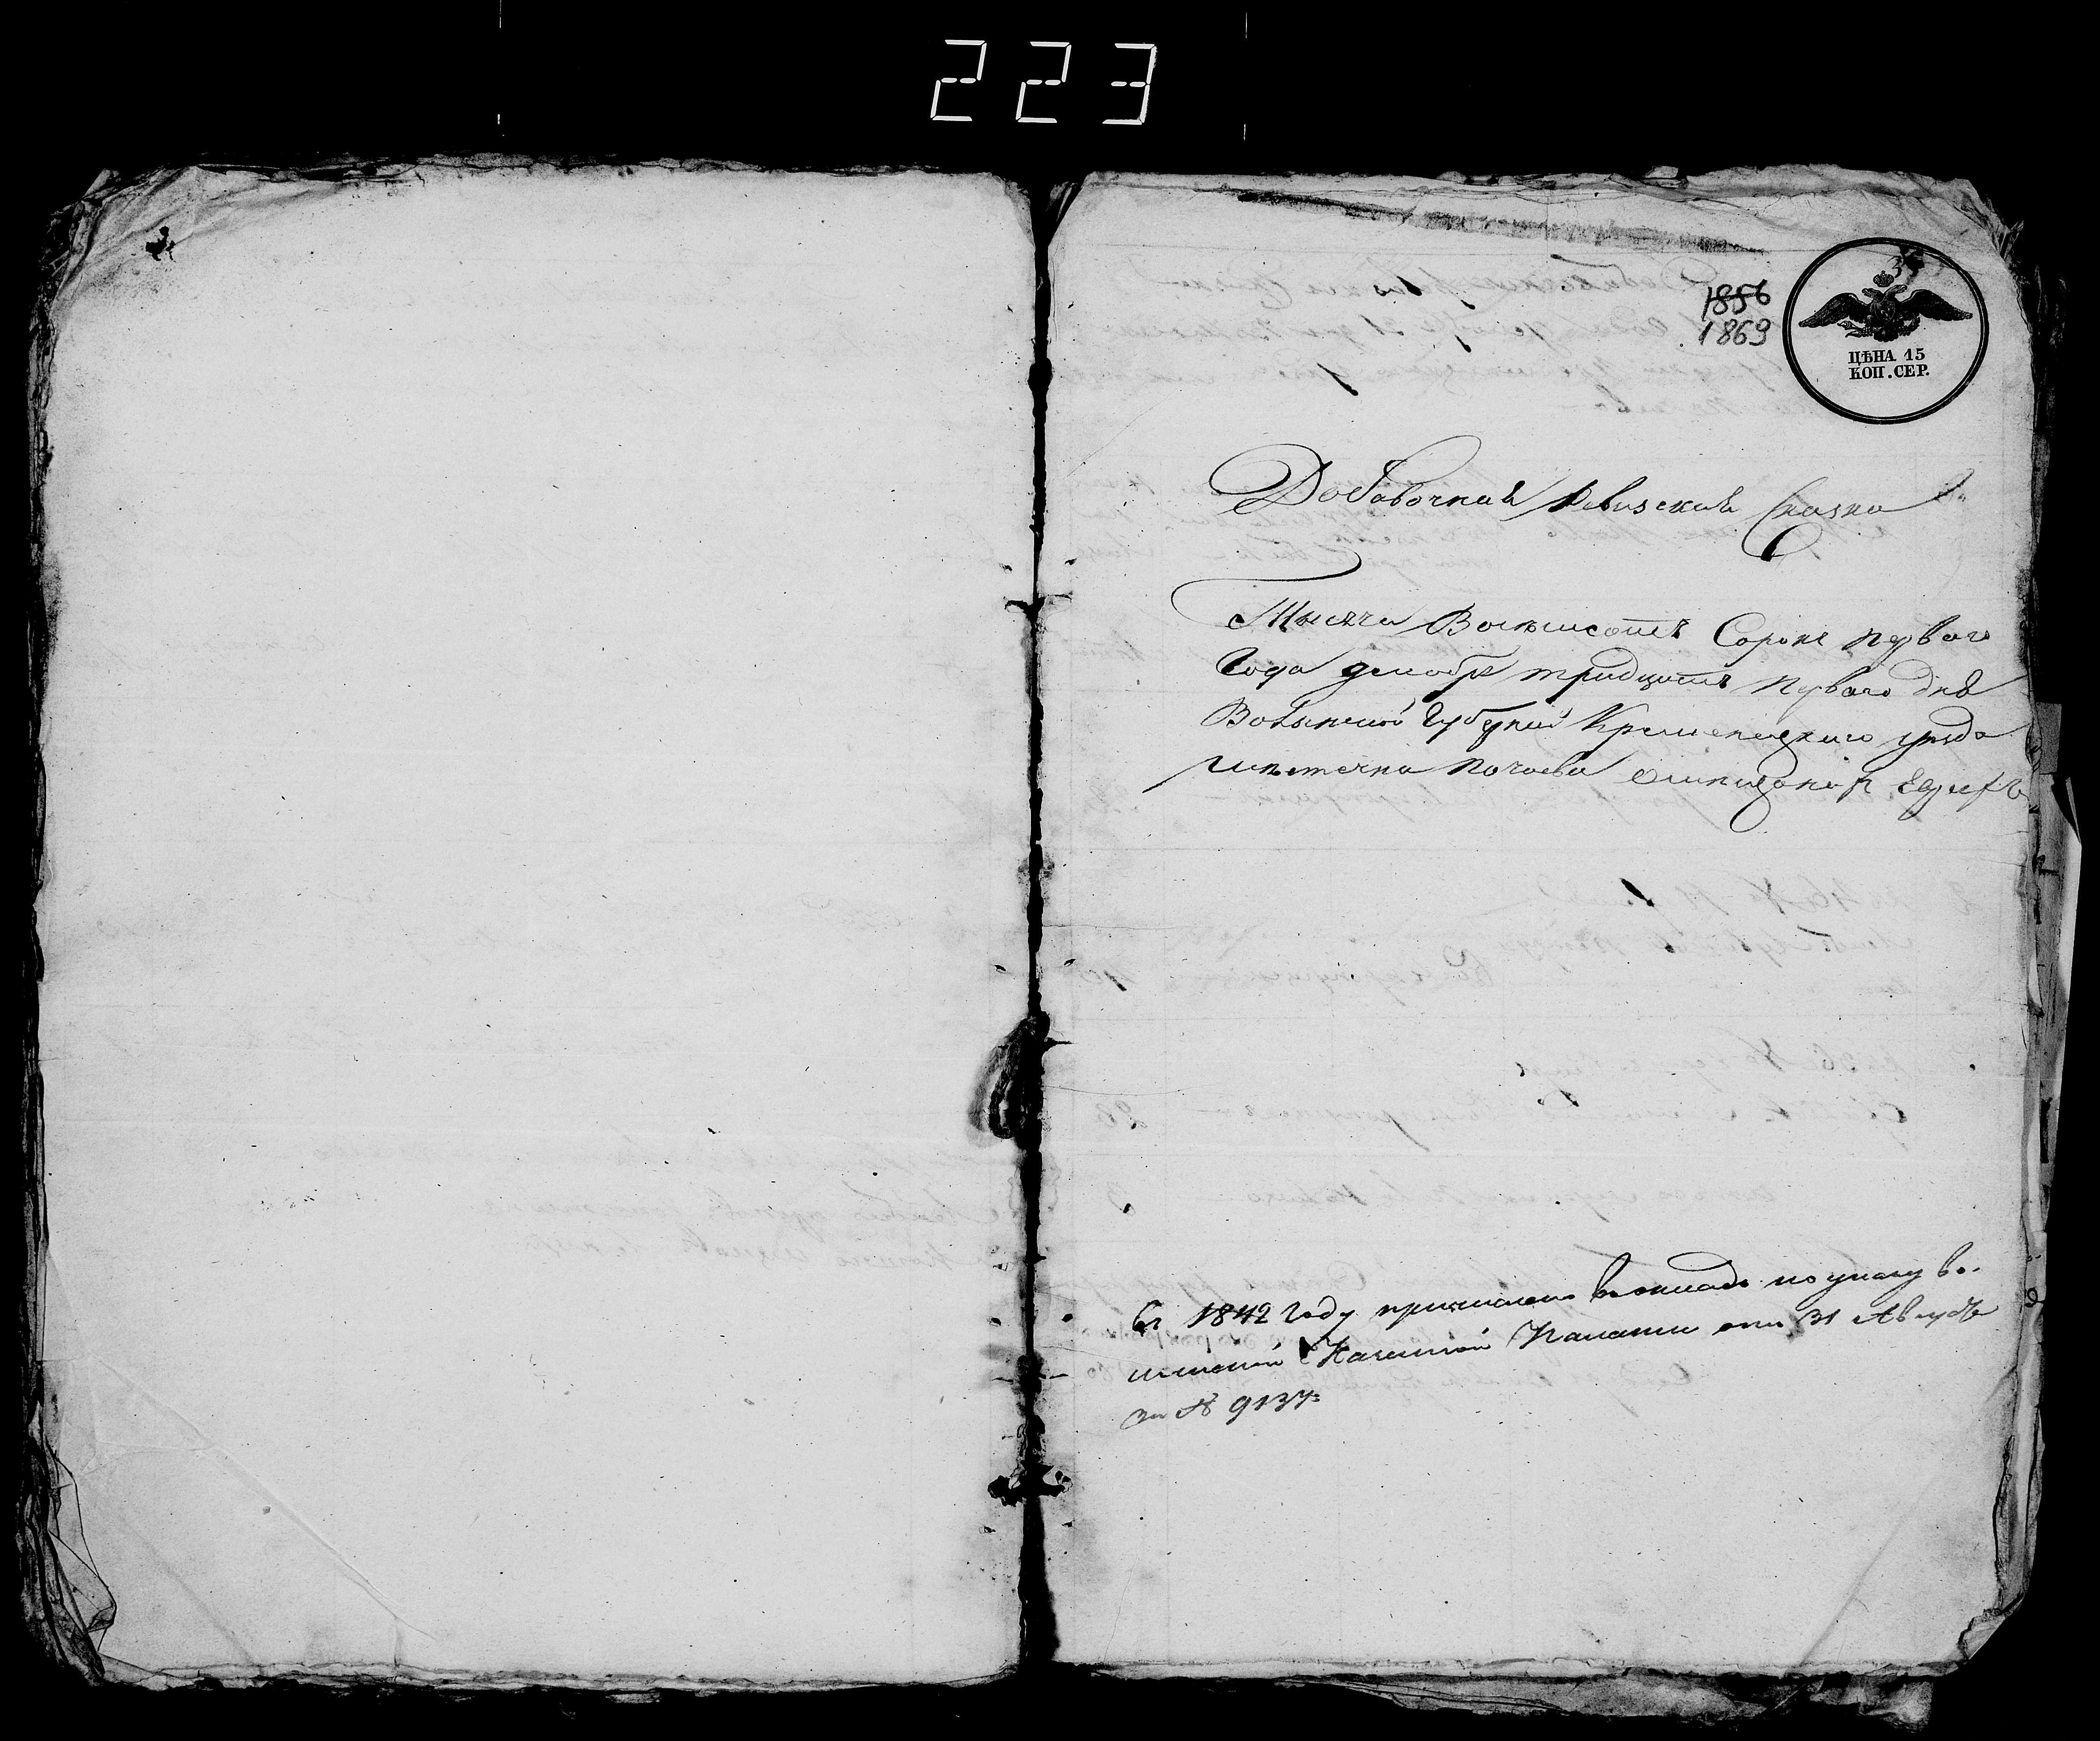 223
1856
1869
ЦѢНА 15
КОП. СЕР.
Добавочная Ревизская Сказка
Тысяча Восемьсотъ Сорокъ перваго
Года декабря тридцать перваго дня
Волынской Губерніи Кременецкаго уѣзда
мѣстечка Почаева о мѣщанахъ Евреяхъ
въ 1842 году причислено въ окладъ по указу Во-
лынской Казенной Палаты отъ 31 Августа
за № 9137